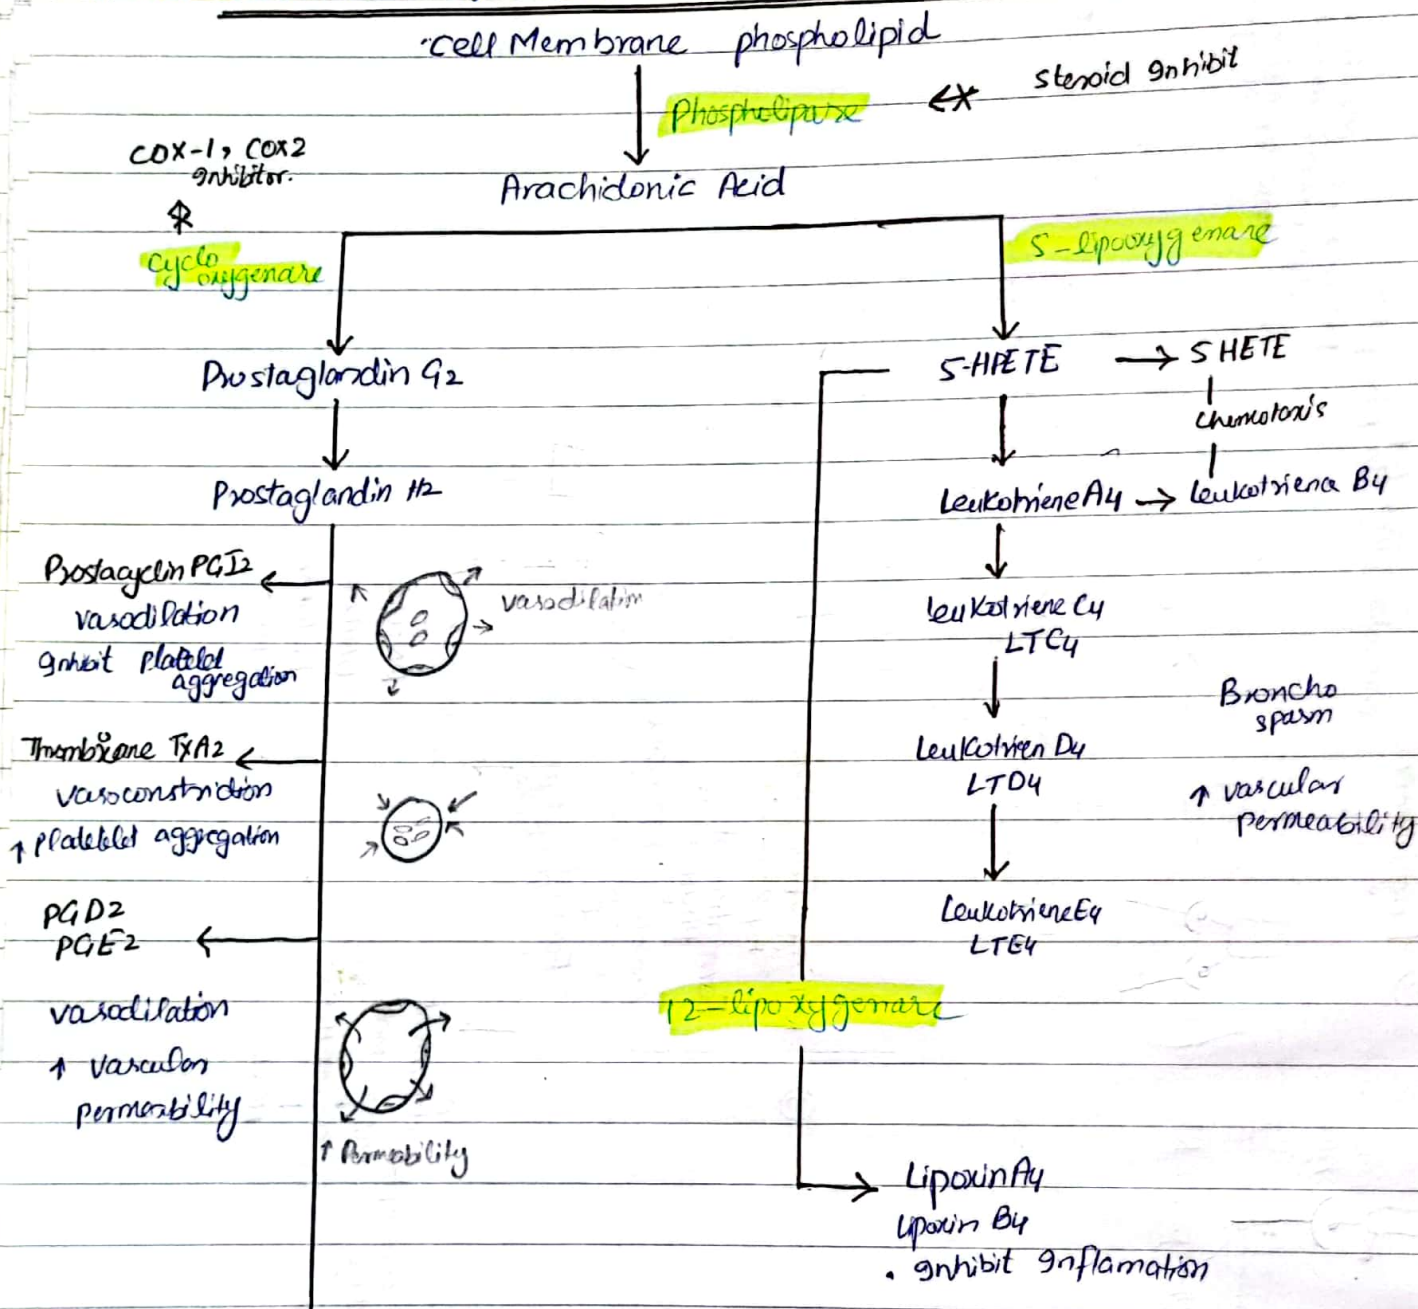 Cell Membrane phospholipid
Phospholipase
Steroid Inhibit
COX-1, COX2
Inhibitor.
Arachidonic Acid
Cyclo
oxygenase
5-lipooxygenase
Prostaglandin G2
5-HPETE
5 HETE
Chemotaxis
Prostaglandin H2
Leukotriene A4
Leukotriena B4
Prostacyclin PGI2
vasodilation
Inhibit Platelet
aggregation
vasodilation
Leukotriene C4
LTC4
Broncho
spasm
Thromboxane TxA2
vasoconstriction
↑ Platelet aggregation
Leukotrien D4
LTD4
↑ vascular
permeability
PGD2
PGE2
Leukotriene E4
LTE4
vasodilation
↑ vascular
permeability
12-lipoxygenase
↑ Permeability
Lipoxin A4
Lipoxin B4
. Inhibit Inflamation